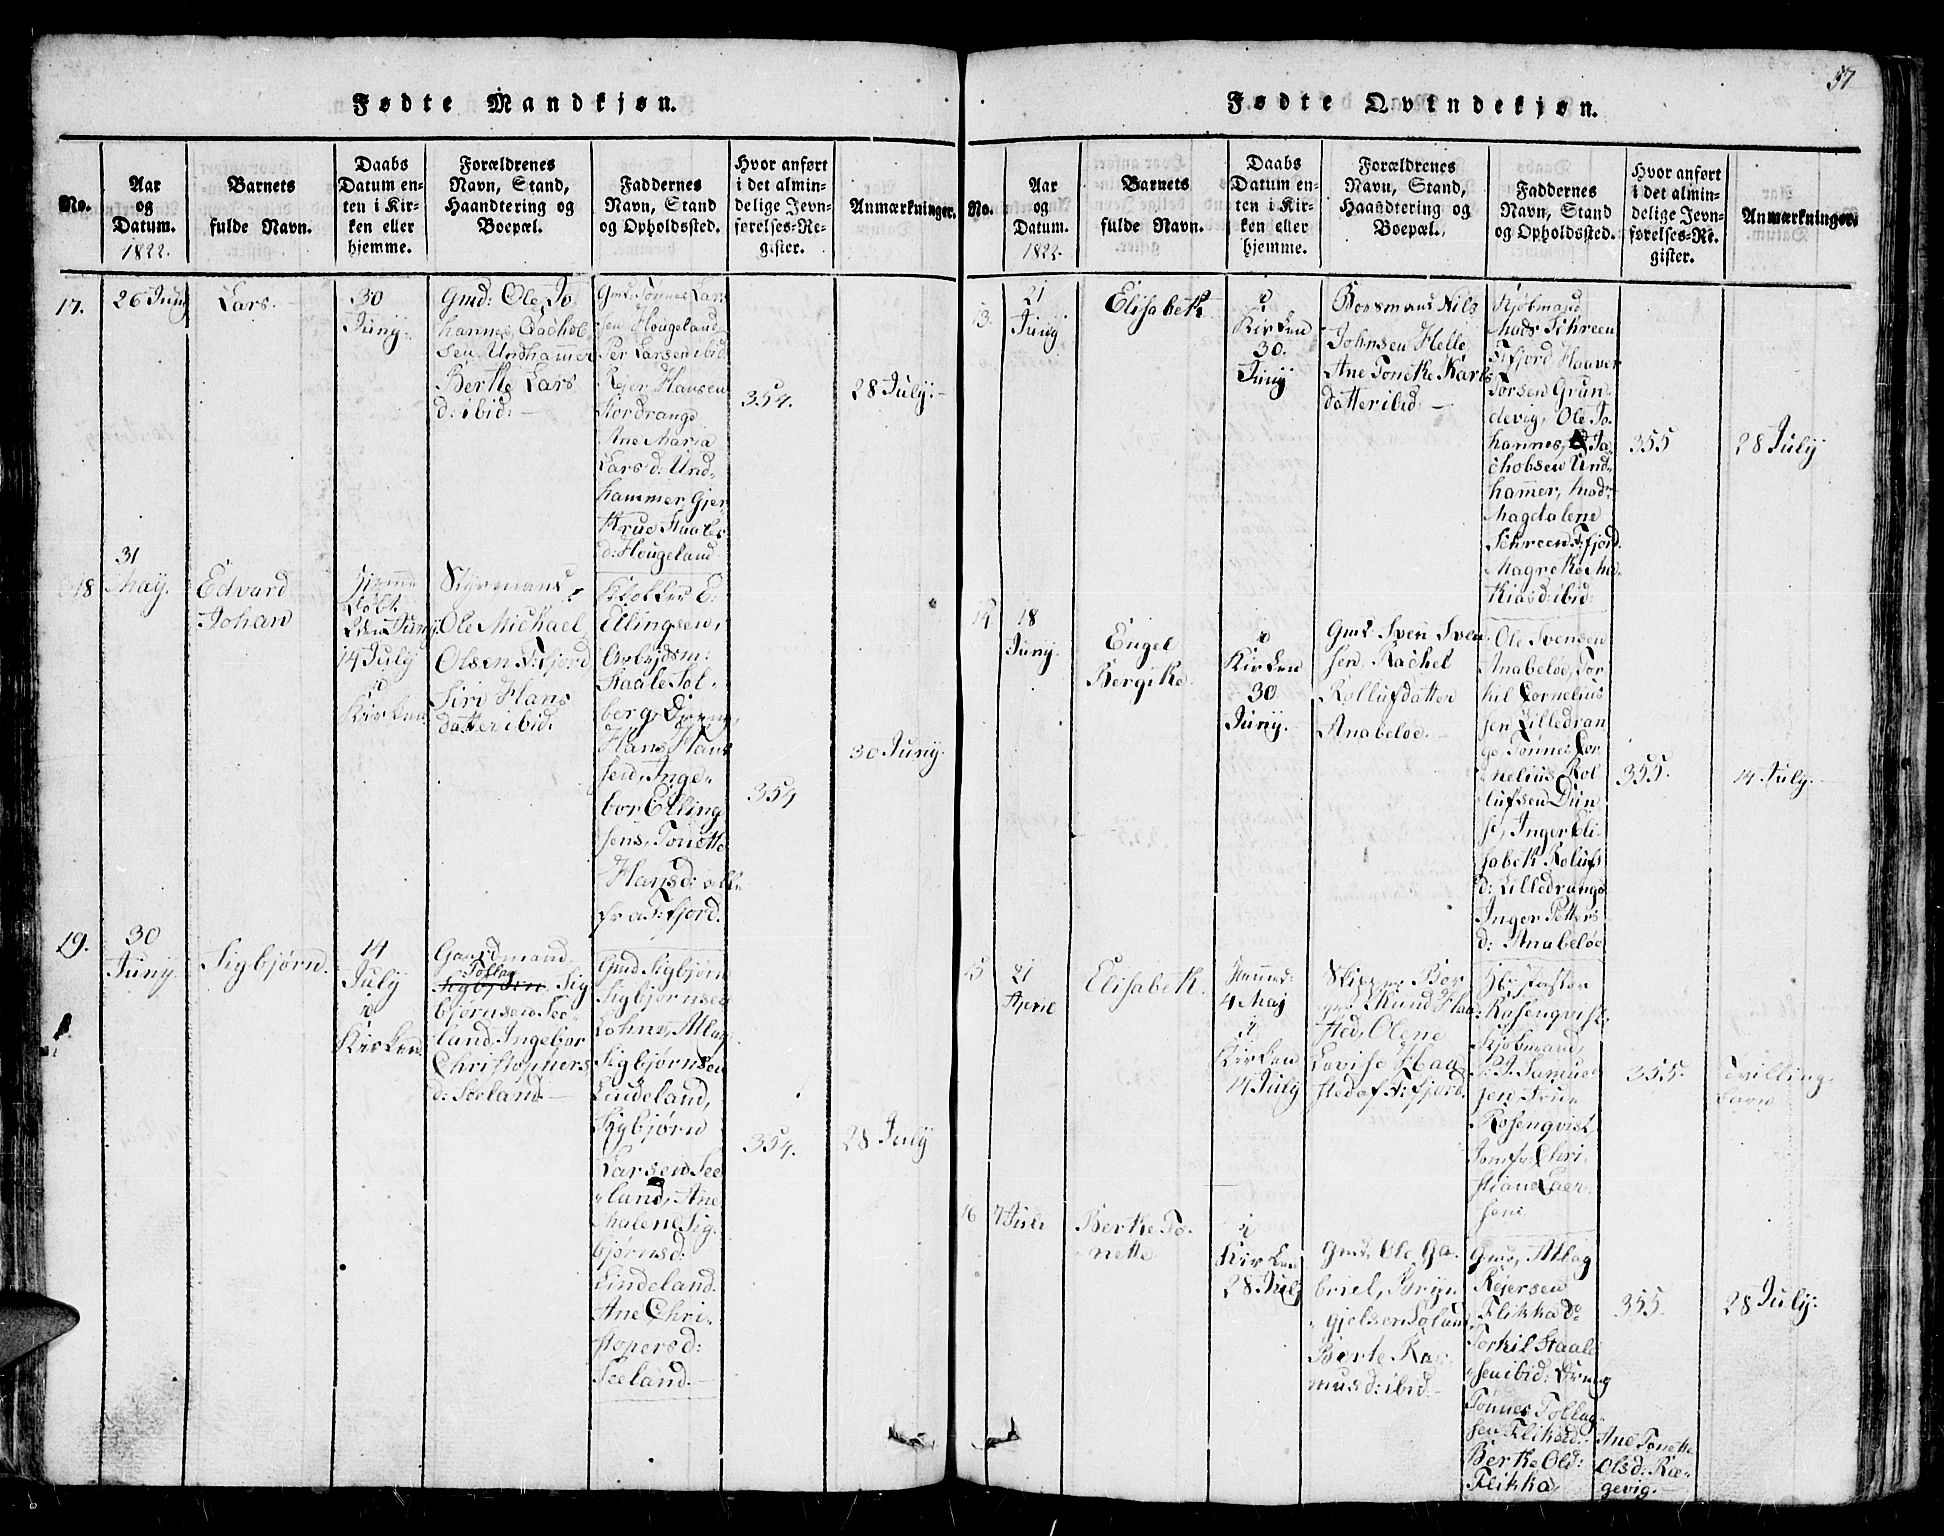 Fødte Mandkjøn.
No.
Aar
og
Datum.
1822.
Barnets
fulde Navn.
Daabs
Datum en-
ten i Kir-
ken eller
hjemme.
Forældrenes
Navn, Stand,
Haandtering og
Boepæl.
Faddernes
Navn, Stand
og Opholdssted.
Hvor anført
i det almin-
delige Jevn-
førelses-Re-
gister.
Anmærkninger.
17.
26 Juny
Lars.
30
Juny.
Gmd: Ole Jo
hannes, Jachob
sen Undhammer
Berthe Lars
d: ibid:
Gmd: Tønnes Lar
sen Hougeland
Per Larsen ibid
Rejer Hansen
Nordrange
Ane Maria
Lars d: Und-
hammer Gjer
thrue Staales
d: Hougeland
354.
28 July.
18
31
May.
Edvard
Johan
Hjemme
døbt
Juny
14 July
i
Kirken
Styrmans
Ole Michael
Olsen F:fjord
Siri Hans
datter ibid:
Klokker E:
Ellingsen,
Arbejdsm:
Staale Sol-
berg, Dreng
Hans Han
sen, Inge-
bor Elling
sens, Tonette
Hans d: alle
fra F:fjord.
354
30 Juny.
19.
30
Juny.
Sigbjørn.
14
July
i
Kirken
Gaardmand
Tollag
Sigbjørn, Sig
bjørnsen See-
land, Ingebor
Christophers
d: Seeland.
Gmd Sigbjørn
Sigbjørnsen
Lohne, Atlag
Sigbjørnsen
Lindeland,
Sigbjørn
Larsen See
land, Ane
Malene Sig
bjørnsd:
Lindeland.
Ane Chri-
stopersd:
Seeland.
354.
28 July
Fødte Qvindekjøn.
57
No.
Aar
og
Datum.
1822.
Barnets
fulde Navn.
Daabs
Datum en-
ten i Kir-
ken eller
hjemme.
Forældrenes
Navn, Stand,
Haandtering og
Boepæl.
Faddernes
Navn, Stand
og Opholdssted.
Hvor anført
i det almin-
delige Jevn-
førelses-Re-
gister.
Anmærkninger.
13.
21
Juny
Elisabeth
i
Kirken
30.
Juny
Boesmand Nils
Johnsen Helle
Ane Tonethe Karls
datter ibid.
Kjøbmand
Mads Schreen
F:fjord Haaver
Torsen Grun-
devig, Ole Jo-
hannes, Ja-
chobsen Und-
hammer, Mad:
Magdalene
Schreen F:fjord.
Magrethe Ma-
thiasd: ibid:
355
28 July
14
18
Juny.
Engel
Bergithe.
i
Kirken
30
Juny.
Gmd: Sven Sven
sen, Rachel
Rollufdatter
Anabeløe.
Ole Svensen
Anabeløe, Tor
kil Cornelius
sen Lilledran
ge, Tønnes Cor
nelius, Rol
lufsen Dun
se, Inger Eli-
sabeth Rolufs
d: Lilledrange
Inger Petters
d: Anabeløe
355.
14 July.
15
21
April
Elisabeth.
4 Maj
i
Kirken
14 July
Skipper Bør
ge Knud Haa
sted, Olene
Lovise Haa
sted af F:fjord.
Rosenqvist
Kjøbmand
P. J. Samuel
sen, Frue
Rosenqvist
Jomfr: Chri-
stiane Eger
sen
355.
Tvilling-
barn
16
7 July
Berthe To-
nette
i
Kirken
28 July
Gmd: Ole Ga-
briel, Bryn-
gjelsen Soland
Berte Ras-
mus d: ibid
Gmd, Atlag
Rejersen
Flikka d:
Torkil Staale
sen ibid: Dreng
Tønnes Tollag-
sen Flikka d:
Berthe Ols d:
Flikka,
Ane Tonette
Olsd: Ræ-
gevig.
355.
28 July.